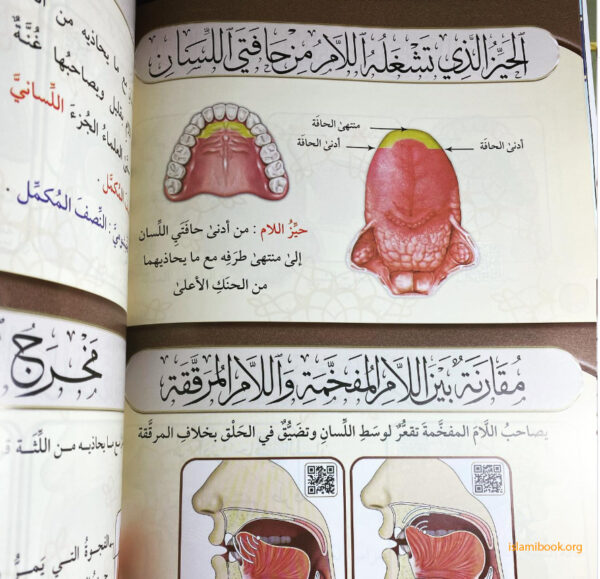 الحَيِّزُ الَّذِي تَشْغَلُهُ اللَّامُ مِنْ حَافَتَيِ اللِّسَانِ
منتهى الحافة
أدنى الحافة
أدنى الحافة
حيِّزُ اللام : من أدنىٰ حافتَيِ اللِّسان
إلىٰ منتهىٰ طرَفِه مع ما يحاذيهما
من الحنَكِ الأعلىٰ
مُقَارَنَةٌ بَيْنَ اللَّامِ المُفَخَّمَةِ وَاللَّامِ المُرَقَّقَةِ
يصاحبُ اللَّامَ المفخَّمةَ تقعُّرٌ لوسَطِ اللِّسانِ وتضيُّقٌ في الحَلْق بخلافِ المرقَّقة
مع ما يحاذيه من
ويصاحبُها غُنَّةٌ
العلماءُ الجُزءَ اللِّسانيَّ
المُكمِّل .
: النِّصفَ المُكمِّل .
مَخْرَجُ
ما يحاذيه مـن اللِّثَـة
الفجوةُ التـي يَمـرُّ
islamibook.org